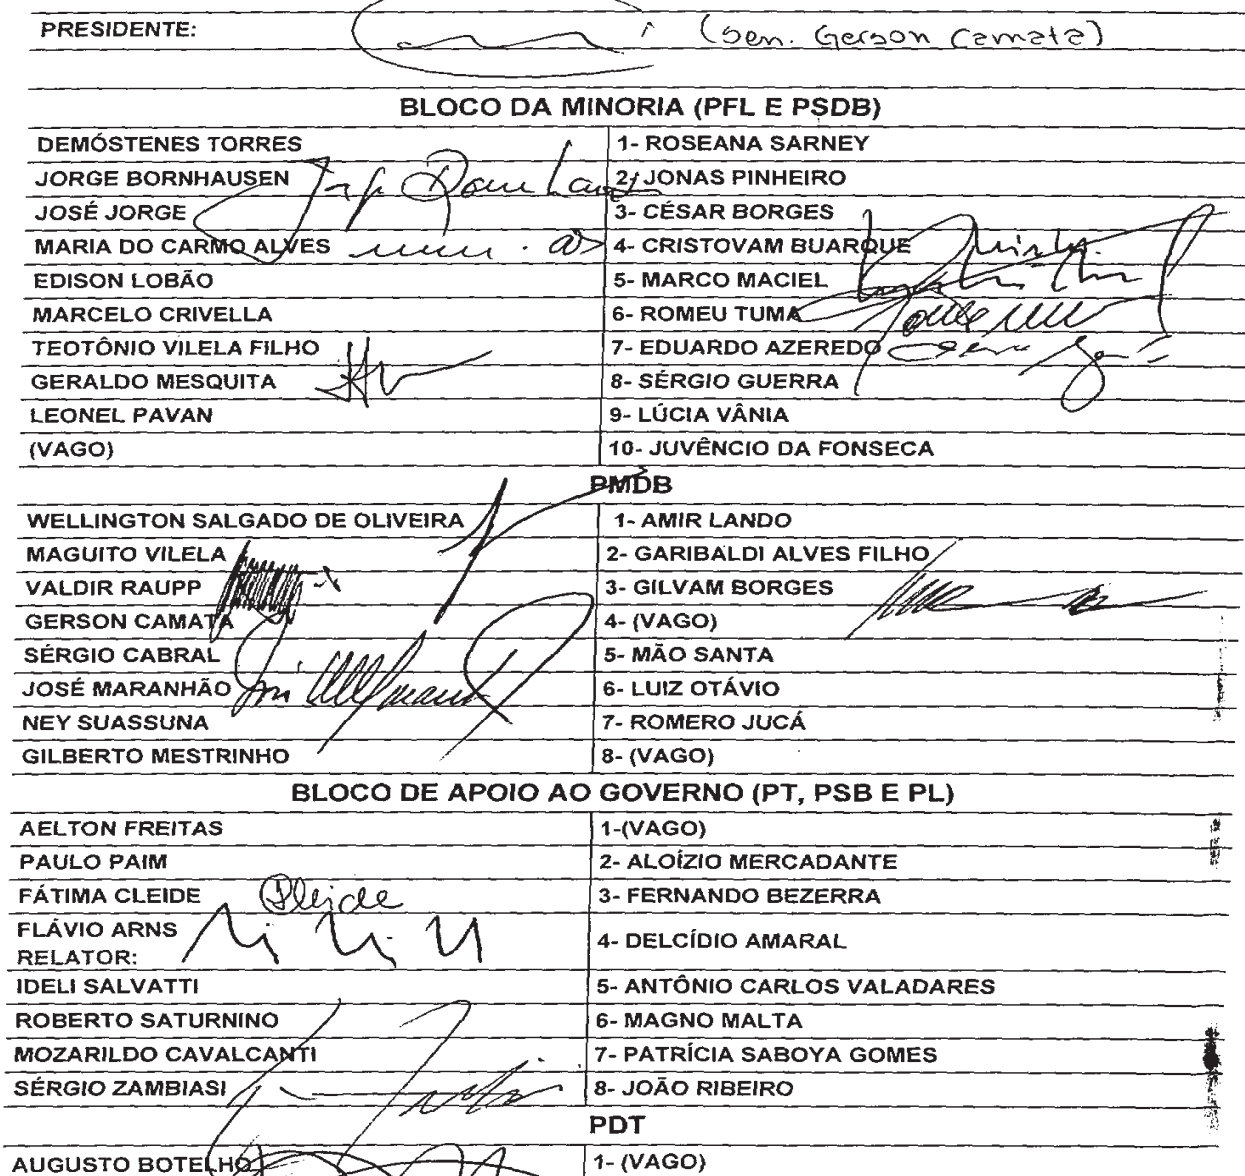 PRESIDENTE: (Sen. Gerson Camata)
BLOCO DA MINORIA (PFL E PSDB)
DEMÓSTENES TORRES 1- ROSEANA SARNEY
JORGE BORNHAUSEN 2- JONAS PINHEIRO
JOSÉ JORGE 3- CÉSAR BORGES
MARIA DO CARMO ALVES 4- CRISTOVAM BUARQUE
EDISON LOBÃO 5- MARCO MACIEL
MARCELO CRIVELLA 6- ROMEU TUMA
TEOTÔNIO VILELA FILHO 7- EDUARDO AZEREDO
GERALDO MESQUITA 8- SÉRGIO GUERRA
LEONEL PAVAN 9- LÚCIA VÂNIA
(VAGO) 10- JUVÊNCIO DA FONSECA
PMDB
WELLINGTON SALGADO DE OLIVEIRA 1- AMIR LANDO
MAGUITO VILELA 2- GARIBALDI ALVES FILHO
VALDIR RAUPP 3- GILVAM BORGES
GERSON CAMATA 4- (VAGO)
SÉRGIO CABRAL 5- MÃO SANTA
JOSÉ MARANHÃO 6- LUIZ OTÁVIO
NEY SUASSUNA 7- ROMERO JUCÁ
GILBERTO MESTRINHO 8- (VAGO)
BLOCO DE APOIO AO GOVERNO (PT, PSB E PL)
AELTON FREITAS 1-(VAGO)
PAULO PAIM 2- ALOÍZIO MERCADANTE
FÁTIMA CLEIDE Cleide 3- FERNANDO BEZERRA
FLÁVIO ARNS
RELATOR: 4- DELCÍDIO AMARAL
IDELI SALVATTI 5- ANTÔNIO CARLOS VALADARES
ROBERTO SATURNINO 6- MAGNO MALTA
MOZARILDO CAVALCANTI 7- PATRÍCIA SABOYA GOMES
SÉRGIO ZAMBIASI 8- JOÃO RIBEIRO
PDT
AUGUSTO BOTELHO 1- (VAGO)